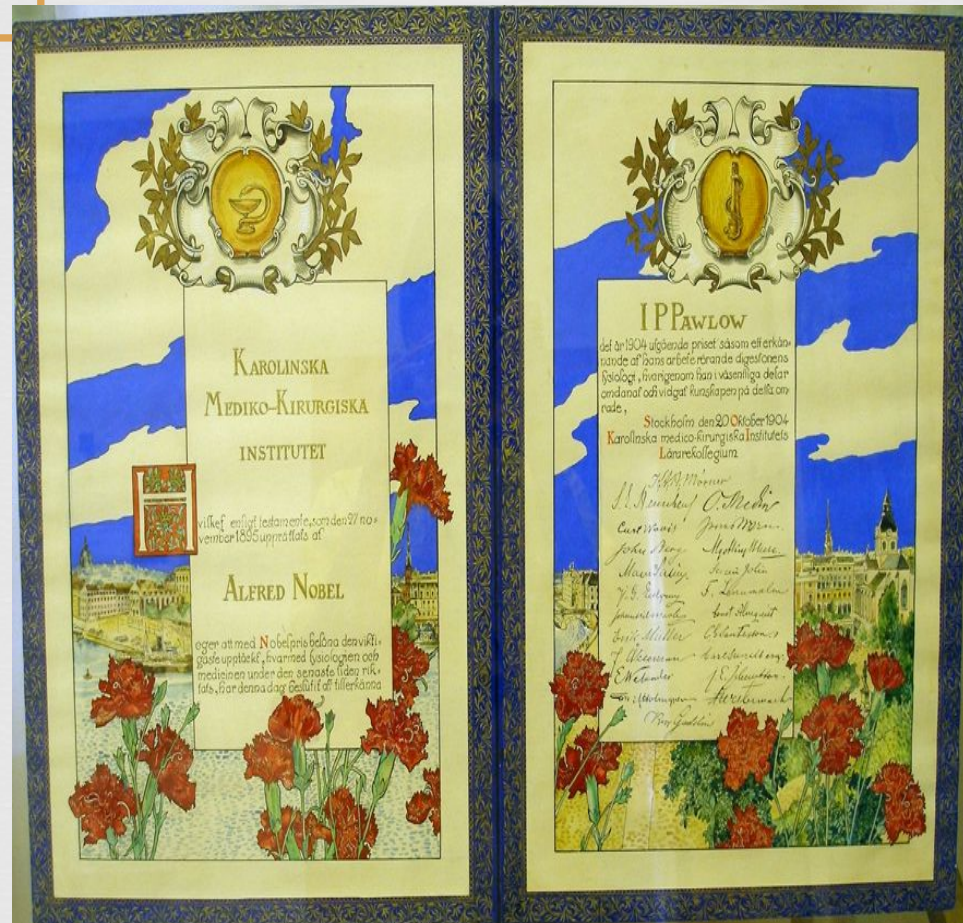 KAROLINSKA
MEDIKO-KIRURGISKA
INSTITUTET
Hvilket enligt testamente, som den 27 no-
vember 1895 upprättats af
ALFRED NOBEL
eger att med Nobelpris belöna den vikti-
gaste upptäckt, hvarmed fysiologien och
medicinen under den senaste tiden rik-
tats, har denna dag beslutit att tillerkänna
I P PAWLOW
det år 1904 utgående priset såsom ett erkän-
nande af hans arbete rörande digestionens
fysiologi, hvarigenom han i väsentliga delar
omdanat och vidgat kunskapen på detta om-
råde,
Stockholm den 20 Oktober 1904
Karolinska medico-kirurgiska Institutets
Lärarekollegium
Mörner
O. Medin
Curt Wallis
John Berg
Erik Müller
J. Åkerman